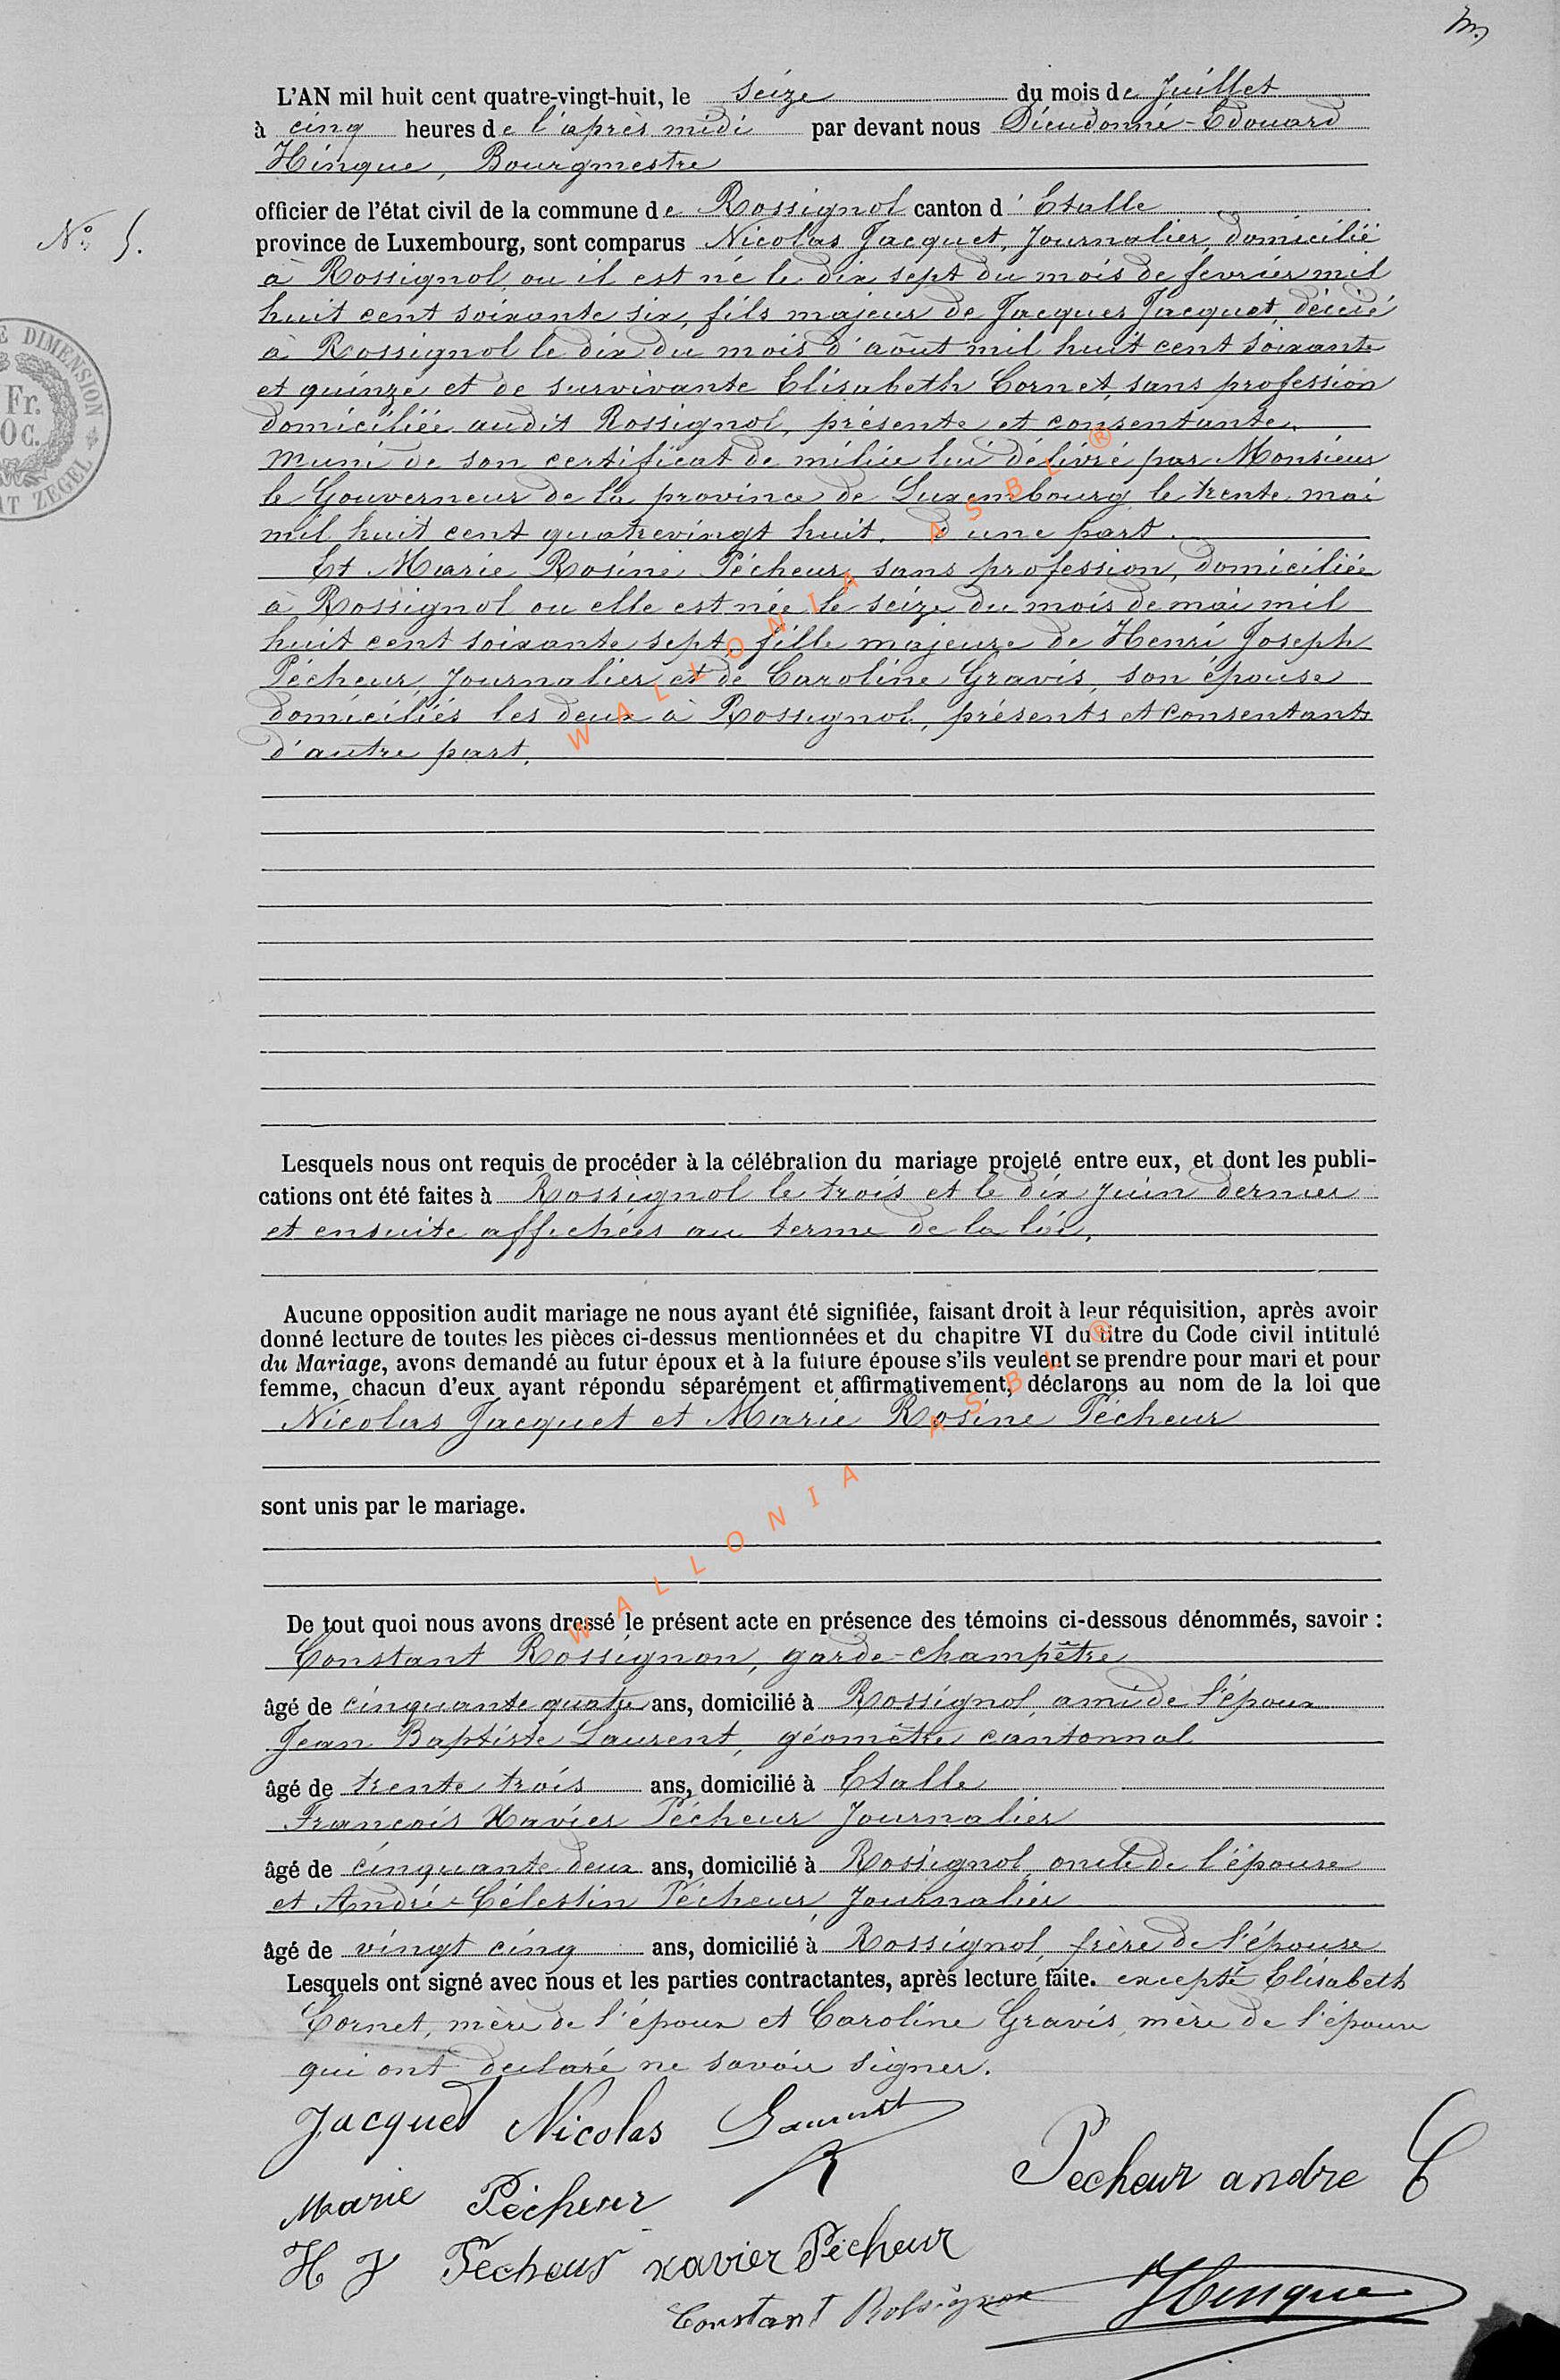 m
L'AN mil huit cent quatre-vingt-huit, le seize du mois de Juillet
à cinq heures de l'après midi par devant nous Dieudonné-Edouard
Hinque, Bourgmestre
officier de l'état civil de la commune de Rossignol canton d'Etalle
N° 5.
province de Luxembourg, sont comparus Nicolas Jacquet, Journalier, domicilié
à Rossignol, ou il est né le dix sept du mois de fevrier mil
huit cent soixante six, fils majeur de Jacques Jacquet, décédé
à Rossignol le dix du mois d'août mil huit cent soixante
et quinze et de survivante Elisabeth Cornet, sans profession
domiciliée audit Rossignol, présente et consentante.
muni de son certificat de milice lui délivré par Monsieur
le Gouverneur de la province de Luxembourg le trente mai
mil huit cent quatrevingt huit. d'une part.
Et Marie Rosine Pécheur, sans profession, domiciliée
à Rossignol ou elle est née le seize du mois de mai mil
huit cent soixante sept, fille majeure de Henri Joseph
Pécheur, Journalier et de Caroline Gravis, son épouse
domiciliés les deux à Rossignol, présents et consentants
d'autre part.
E DIMENSION
Fr.
0 C.
AT ZEGEL
WALLONIA ASBL ®
Lesquels nous ont requis de procéder à la célébration du mariage projeté entre eux, et dont les publi-
cations ont été faites à Rossignol le trois et le dix juin dernier
et ensuite affichées au terme de la loi.
Aucune opposition audit mariage ne nous ayant été signifiée, faisant droit à leur réquisition, après avoir
donné lecture de toutes les pièces ci-dessus mentionnées et du chapitre VI du titre du Code civil intitulé
du Mariage, avons demandé au futur époux et à la future épouse s'ils veulent se prendre pour mari et pour
femme, chacun d'eux ayant répondu séparément et affirmativement, déclarons au nom de la loi que
Nicolas Jacquet et Marie Rosine Pécheur
sont unis par le mariage.
WALLONIA ASBL ®
De tout quoi nous avons dressé le présent acte en présence des témoins ci-dessous dénommés, savoir :
Constant Rossignon, garde-champêtre
âgé de cinquante quatre ans, domicilié à Rossignol, ami de l'époux
Jean Baptiste Laurent, géomètre cantonnal
âgé de trente trois ans, domicilié à Etalle
François Xavier Pécheur Journalier
âgé de cinquante deux ans, domicilié à Rossignol, oncle de l'épouse
et André-Célestin Pécheur, Journalier
âgé de vingt cinq ans, domicilié à Rossignol, frère de l'épouse
Lesquels ont signé avec nous et les parties contractantes, après lecture faite. excepté Elisabeth
Cornet, mère de l'époux et Caroline Gravis, mère de l'épouse
qui ont declaré ne savoir signer.
Jacquet Nicolas Laurent
Marie Pécheur Pecheur andre C
H J Pécheur xavier Pécheur
Constant Rossignon Hinque